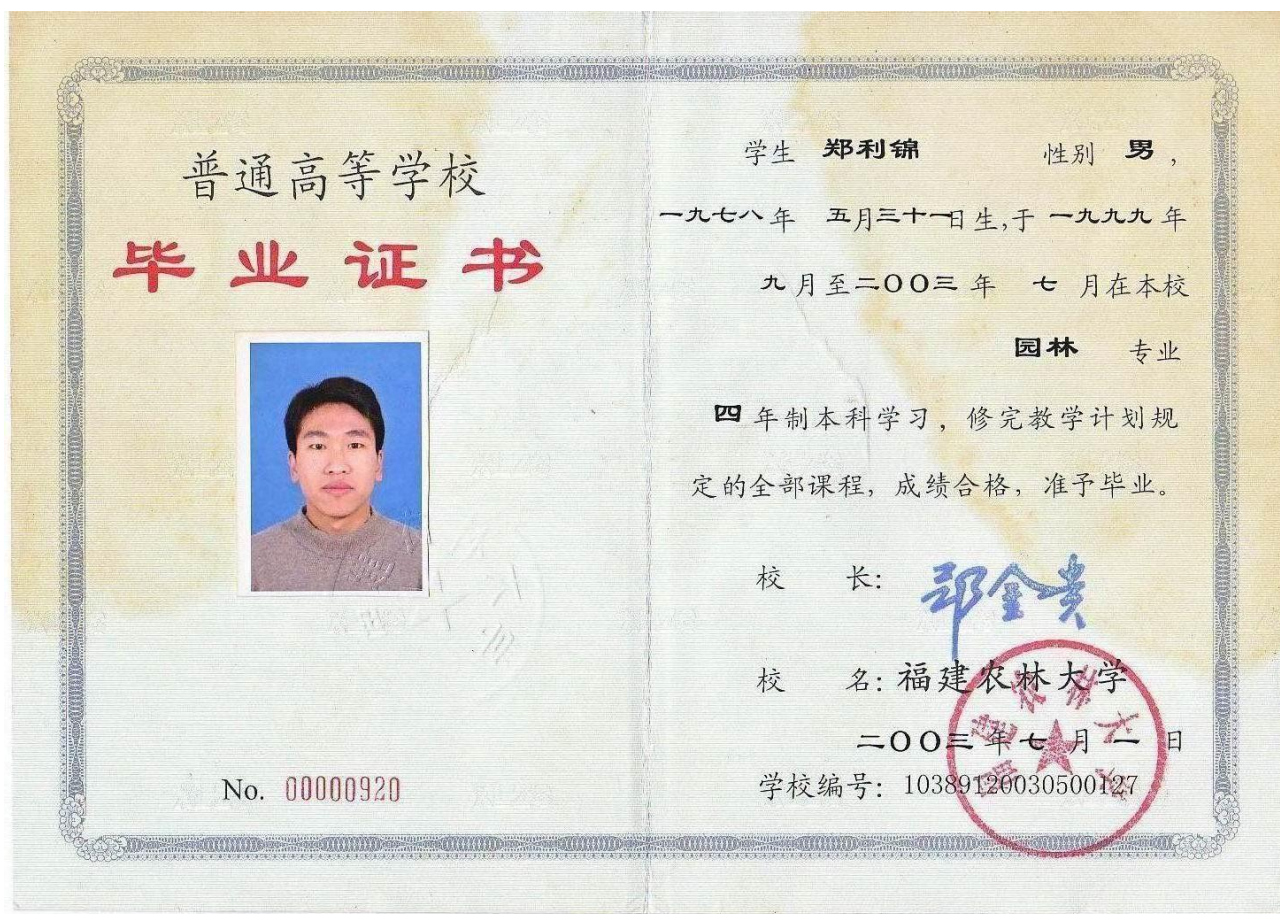 普通高等学校
毕业证书
No. 00000920
学生 郑利锦 性别 男，
一九七八年 五月三十一日生,于 一九九九年
九月至二〇〇三年 七 月在本校
园林 专业
四年制本科学习，修完教学计划规
定的全部课程，成绩合格，准予毕业。
校 长：郑金贵
校 名：福建农林大学
二〇〇三年七月一日
学校编号：10389120030500127
福建农林大学